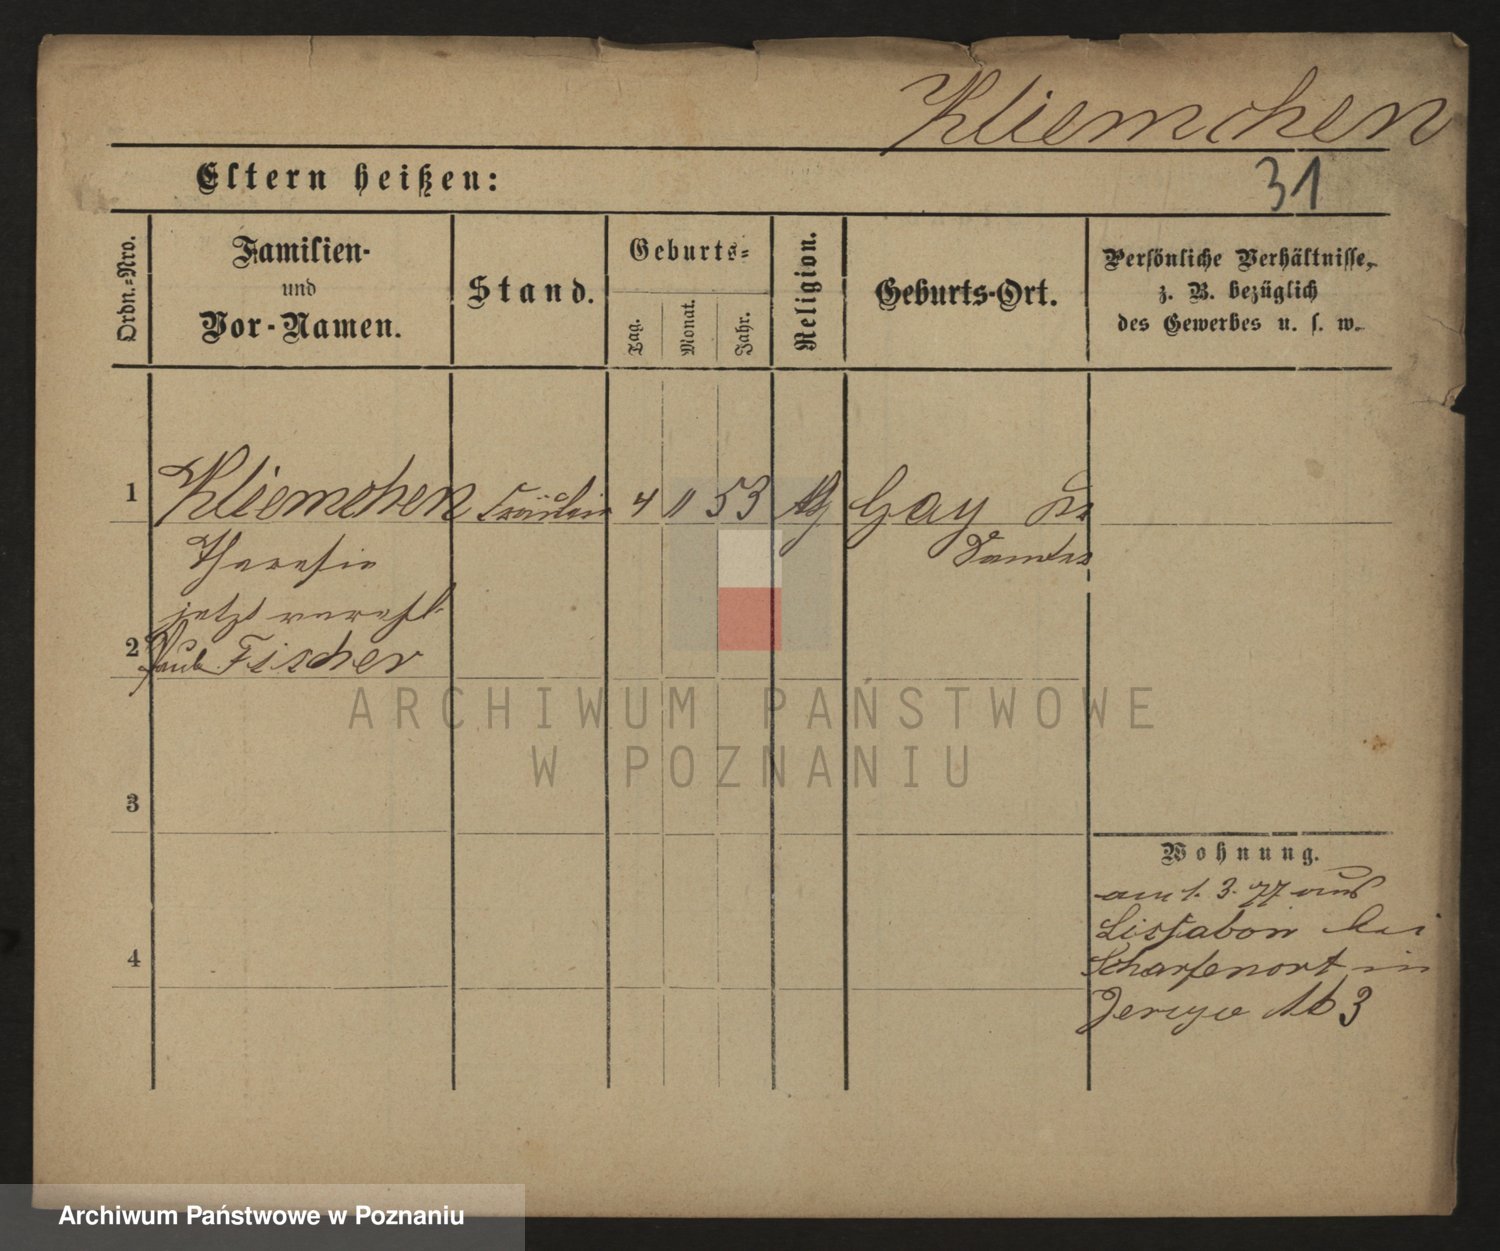 Kliemchen
Eltern heißen:
31
Ordn.-Nro.
Familien-
und
Vor-Namen.
Stand.
Geburts-
Tag.
Monat.
Jahr.
Religion.
Geburts-Ort.
Persönliche Verhältnisse,
z. B. bezüglich
des Gewerbes u. s. w.
1 Kliemchen Fräulein 4 11 53 Gay Kr
Theresie Samter
jetzt verehl.
2 Paul Fischer
ARCHIWUM PAŃSTWOWE
W POZNANIU
3
Wohnung.
am 1. 3. 77 aus
Lissabon bei
4 Scharfenort in
Jerzyce 163
Archiwum Państwowe w Poznaniu